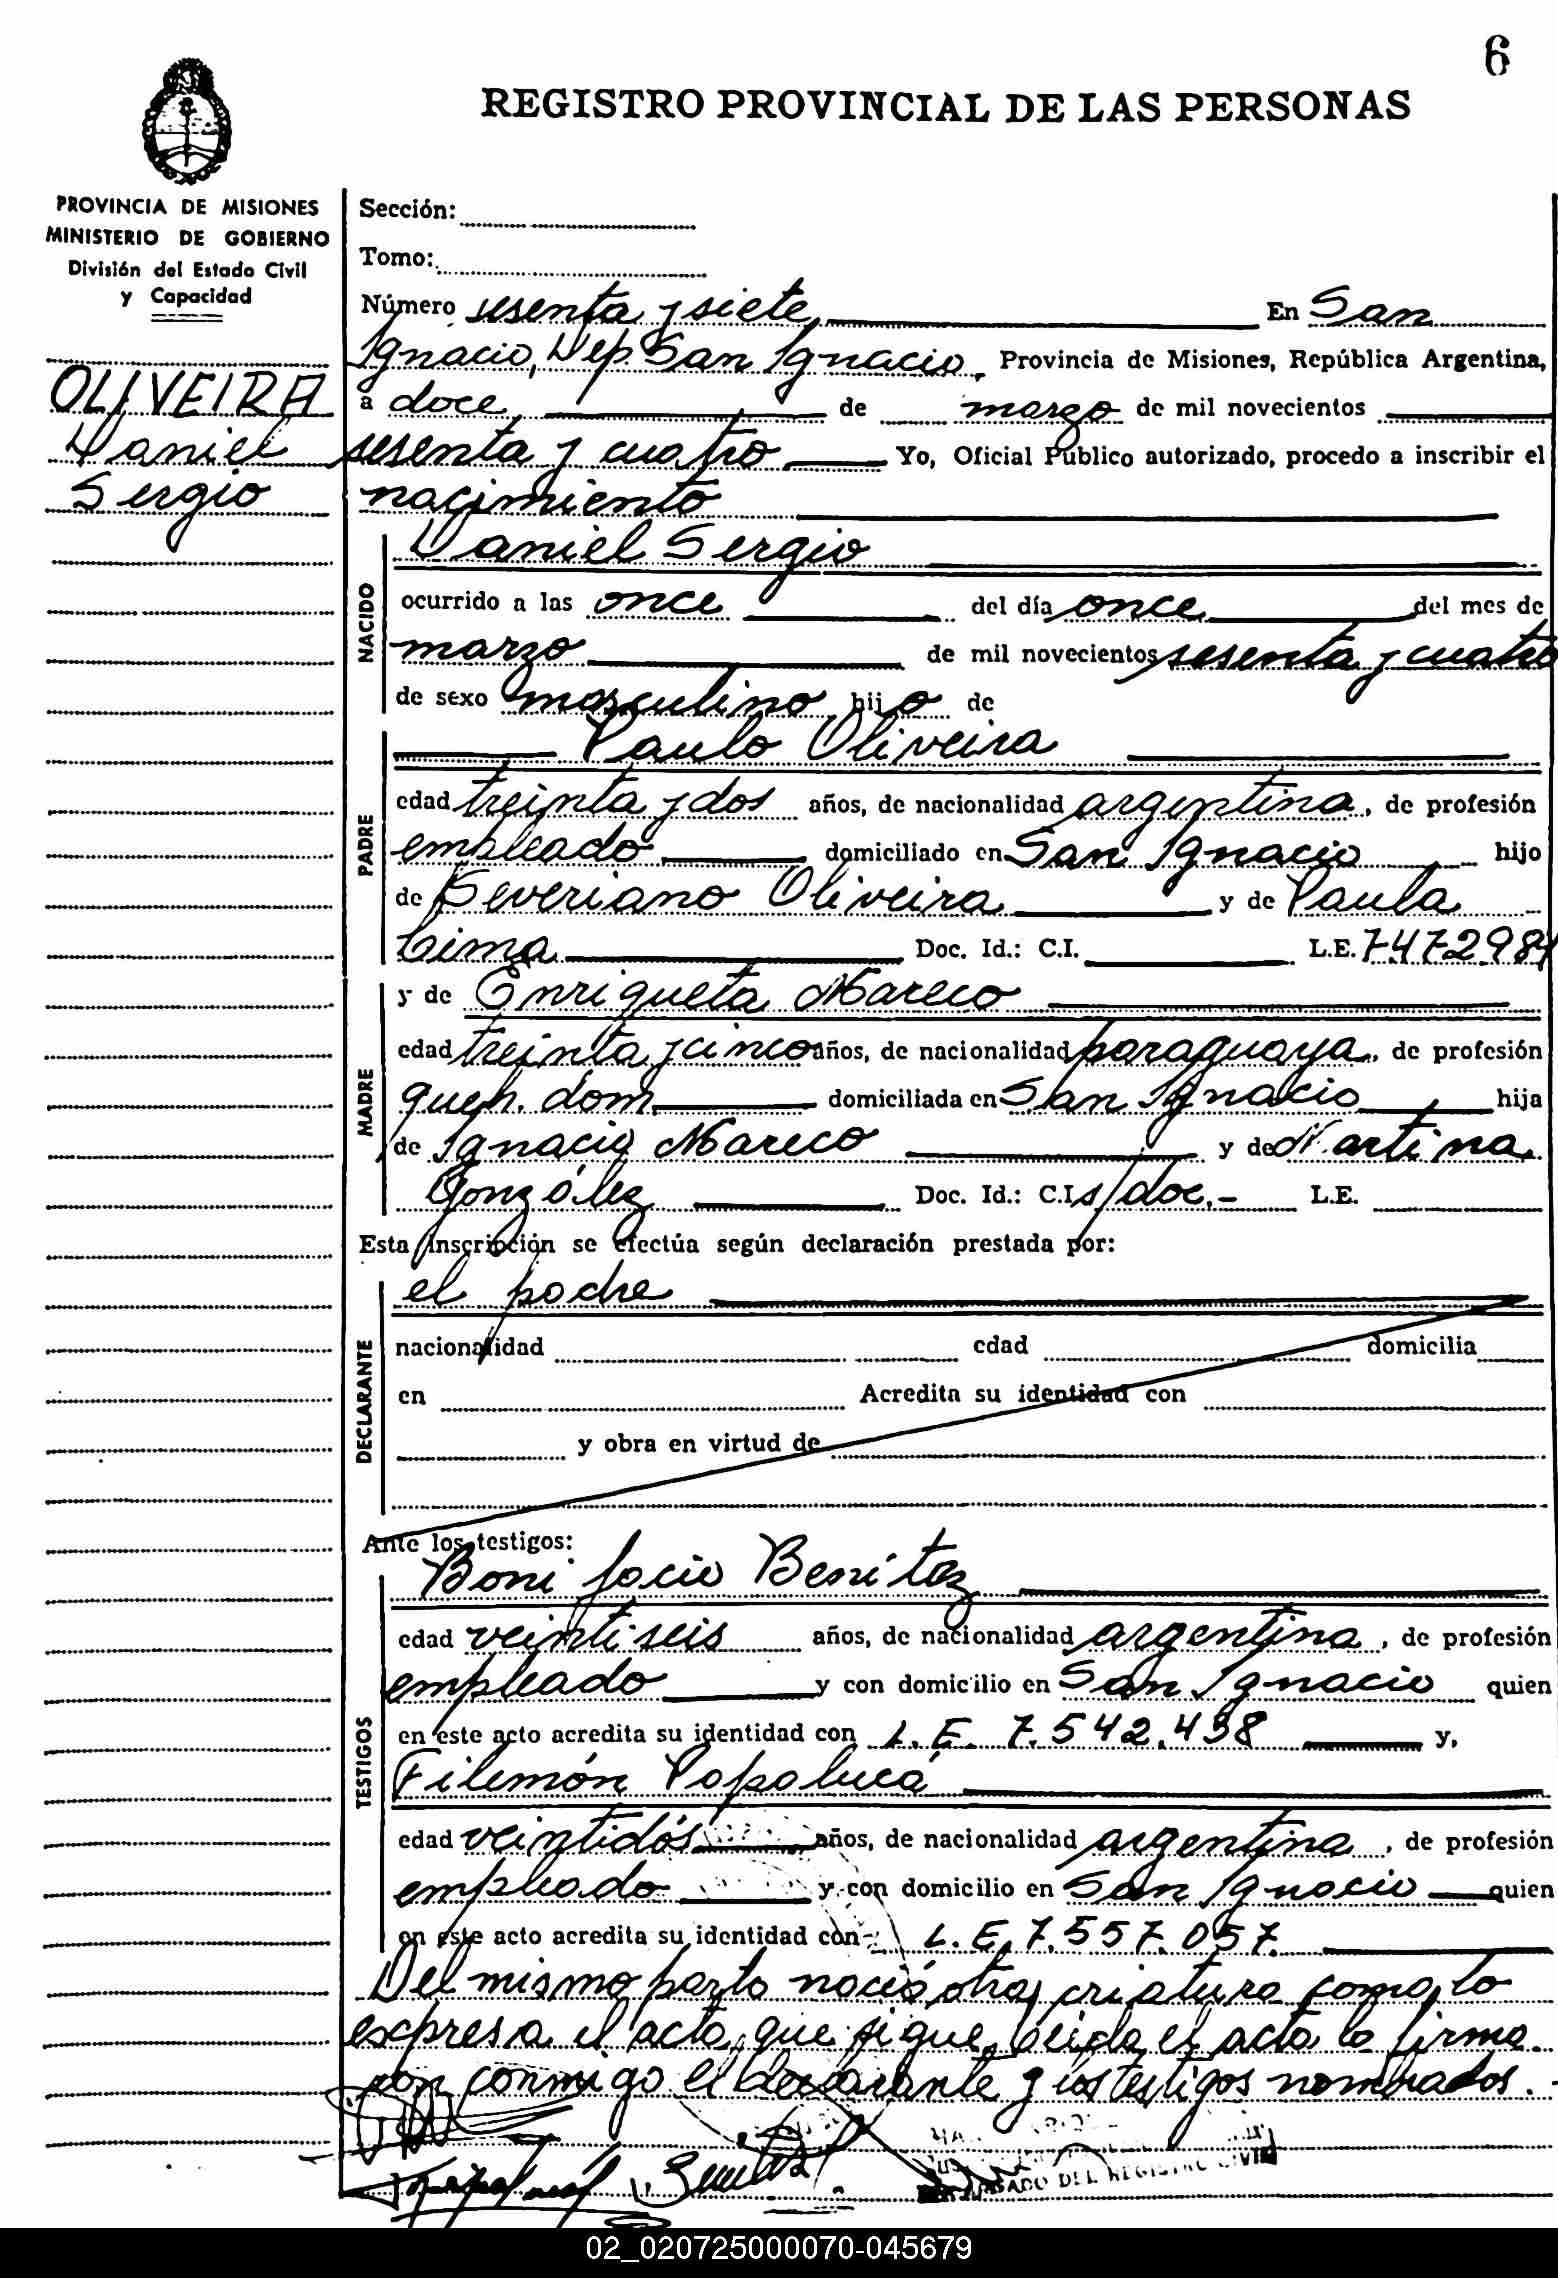 6
REGISTRO PROVINCIAL DE LAS PERSONAS
PROVINCIA DE MISIONES
MINISTERIO DE GOBIERNO
División del Estado Civil
y Capacidad
OLIVEIRA
Daniel
Sergio
Sección:
Tomo:
Número sesenta y siete En San
Ignacio, Dep. San Ignacio, Provincia de Misiones, República Argentina,
a doce de marzo de mil novecientos
sesenta y cuatro Yo, Oficial Público autorizado, procedo a inscribir el
nacimiento
NACIDO
Daniel Sergio
ocurrido a las once del día once del mes de
marzo de mil novecientos sesenta y cuatro
de sexo masculino hijo de
PADRE
Paulo Oliveira
edad treinta y dos años, de nacionalidad argentina, de profesión
empleado domiciliado en San Ignacio hijo
de Severiano Oliveira y de Paula
Lima Doc. Id.: C.I. L.E. 7.472.984
MADRE
y de Enriqueta Mareco
edad treinta y cinco años, de nacionalidad paraguaya, de profesión
queh. dom. domiciliada en San Ignacio hija
de Ignacio Mareco y de Martina
González Doc. Id.: C.I. s/doc.- L.E.
Esta inscripción se efectúa según declaración prestada por:
DECLARANTE
el padre
nacionalidad edad domicilia
en Acredita su identidad con
y obra en virtud de
Ante los testigos:
TESTIGOS
Bonifacio Benítez
edad veintiseis años, de nacionalidad argentina, de profesión
empleado y con domicilio en San Ignacio quien
en este acto acredita su identidad con L.E. 7.542.438 y,
Filemón Popoluca
edad veintidós años, de nacionalidad argentina, de profesión
empleado y con domicilio en San Ignacio quien
en este acto acredita su identidad con L.E. 7.557.057.
Del mismo parto nació otra criatura como lo
expresa el acta que sigue. Leida el acta la firma
ron conmigo el declarante y los testigos nombrados.
DEL REGISTRO CIVIL
02_020725000070-045679